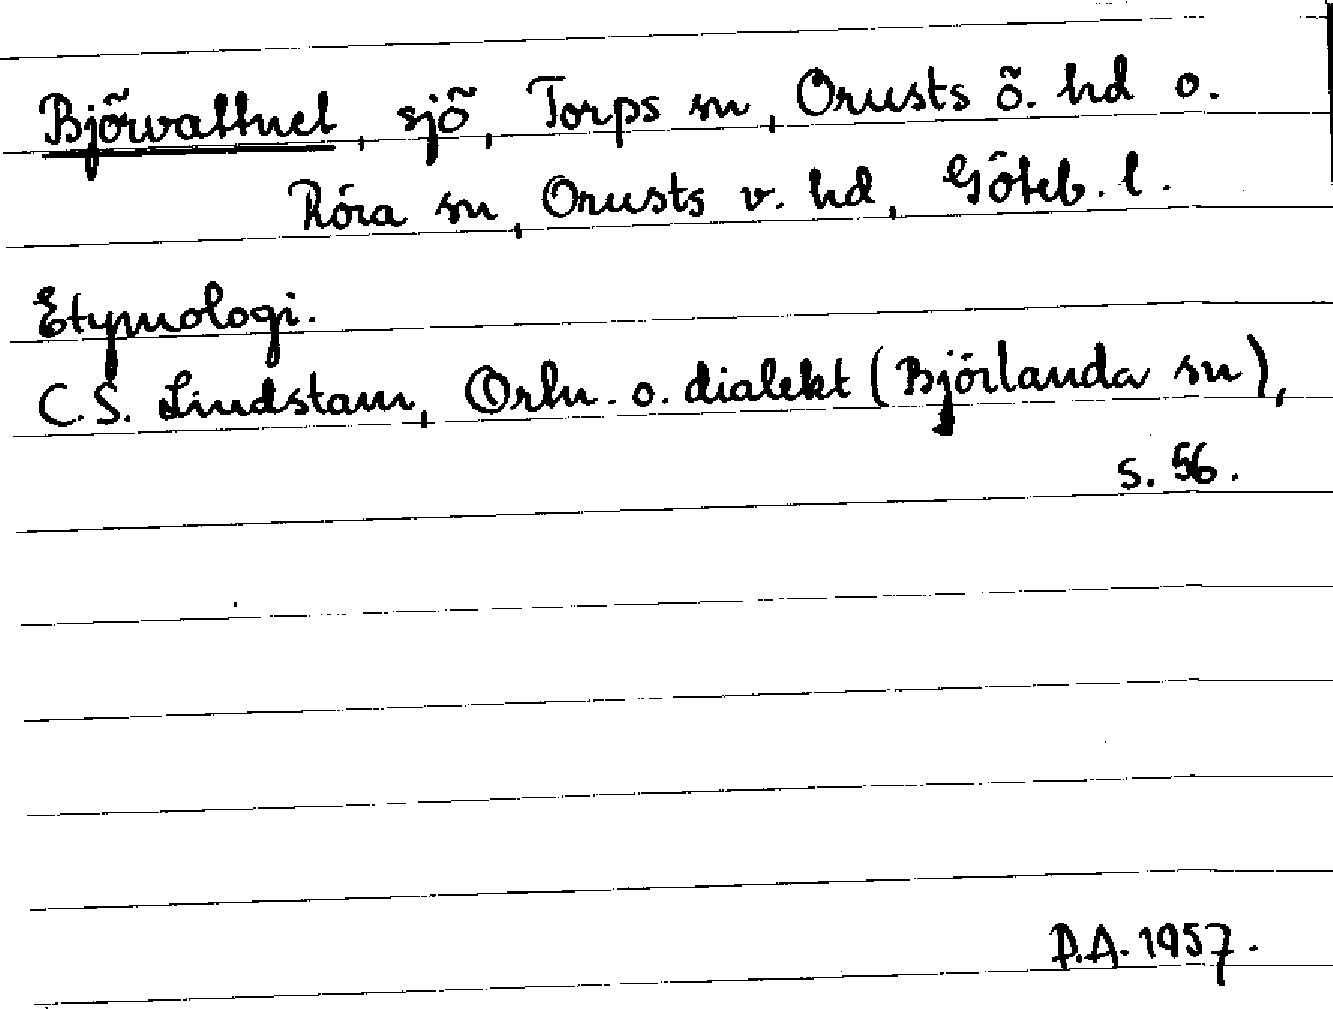 Björvattnet, sjö, Torps sn, Orusts ö. hd o.
Röra sn, Orusts v. hd, Göteb. l.
Etymologi.
C.S. Lindstam, Ortn. o. dialekt (Björlanda sn),
s. 56.
P.A. 1957.